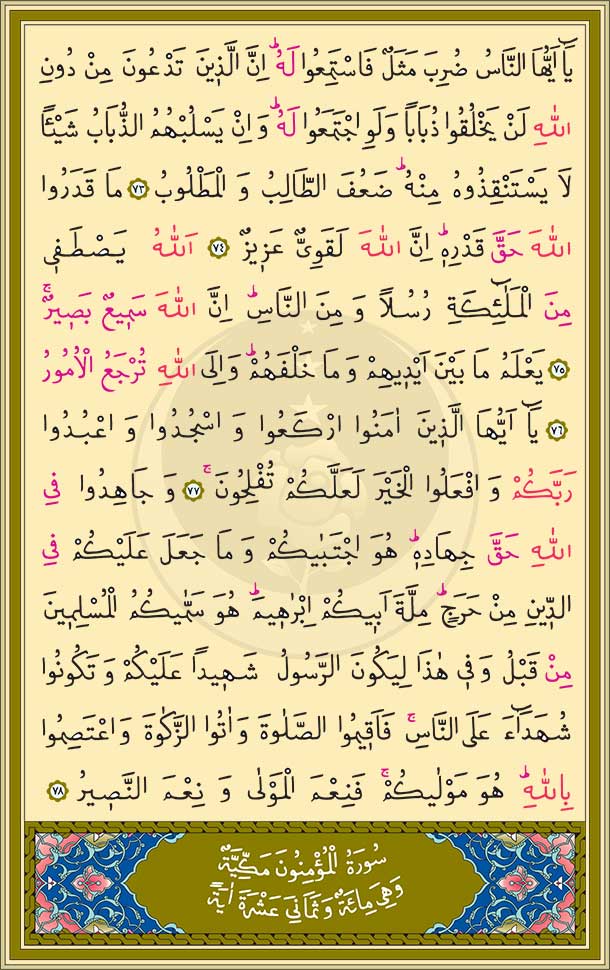 يَٓا اَيُّهَا النَّاسُ ضُرِبَ مَثَلٌ فَاسْتَمِعُوا لَهُۜ اِنَّ الَّذ۪ينَ تَدْعُونَ مِنْ دُونِ
اللّٰهِ لَنْ يَخْلُقُوا ذُبَاباً وَلَوِ اجْتَمَعُوا لَهُۜ وَاِنْ يَسْلُبْهُمُ الذُّبَابُ شَيْـٔاً
لَا يَسْتَنْقِذُوهُ مِنْهُۜ ضَعُفَ الطَّالِبُ وَ الْمَطْلُوبُ ﴿٧٣﴾ مَا قَدَرُوا
اللّٰهَ حَقَّ قَدْرِه۪ۜ اِنَّ اللّٰهَ لَقَوِيٌّ عَز۪يزٌ ﴿٧٤﴾ اَللّٰهُ يَصْطَف۪ي
مِنَ الْمَلٰٓئِكَةِ رُسُلاً وَ مِنَ النَّاسِۜ اِنَّ اللّٰهَ سَم۪يعٌ بَص۪يرٌۚ
﴿٧٥﴾ يَعْلَمُ مَا بَيْنَ اَيْد۪يهِمْ وَ مَا خَلْفَهُمْۜ وَاِلَى اللّٰهِ تُرْجَعُ الْاُمُورُ
﴿٧٦﴾ يَٓا اَيُّهَا الَّذ۪ينَ اٰمَنُوا ارْكَعُوا وَ اسْجُدُوا وَ اعْبُدُوا
رَبَّكُمْ وَ افْعَلُوا الْخَيْرَ لَعَلَّكُمْ تُفْلِحُونَۚ ﴿٧٧﴾ وَ جَاهِدُوا فِي
اللّٰهِ حَقَّ جِهَادِه۪ۜ هُوَ اجْتَبٰيكُمْ وَ مَا جَعَلَ عَلَيْكُمْ فِي
الدّ۪ينِ مِنْ حَرَجٍۜ مِلَّةَ اَب۪يكُمْ اِبْرٰه۪يمَۜ هُوَ سَمّٰيكُمُ الْمُسْلِم۪ينَ
مِنْ قَبْلُ وَ ف۪ي هٰذَا لِيَكُونَ الرَّسُولُ شَه۪يداً عَلَيْكُمْ وَ تَكُونُوا
شُهَدَٓاءَ عَلَى النَّاسِۚ فَاَق۪يمُوا الصَّلٰوةَ وَ اٰتُوا الزَّكٰوةَ وَ اعْتَصِمُوا
بِاللّٰهِۜ هُوَ مَوْلٰيكُمْۚ فَنِعْمَ الْمَوْلٰى وَ نِعْمَ النَّص۪يرُ ﴿٧٨﴾
سُورَةُ الْمُؤْمِنُونَ مَكِّيَّةٌ
وَهِيَ مِائَةٌ وَ ثَمَانِيَ عَشْرَةَ اٰيَةً